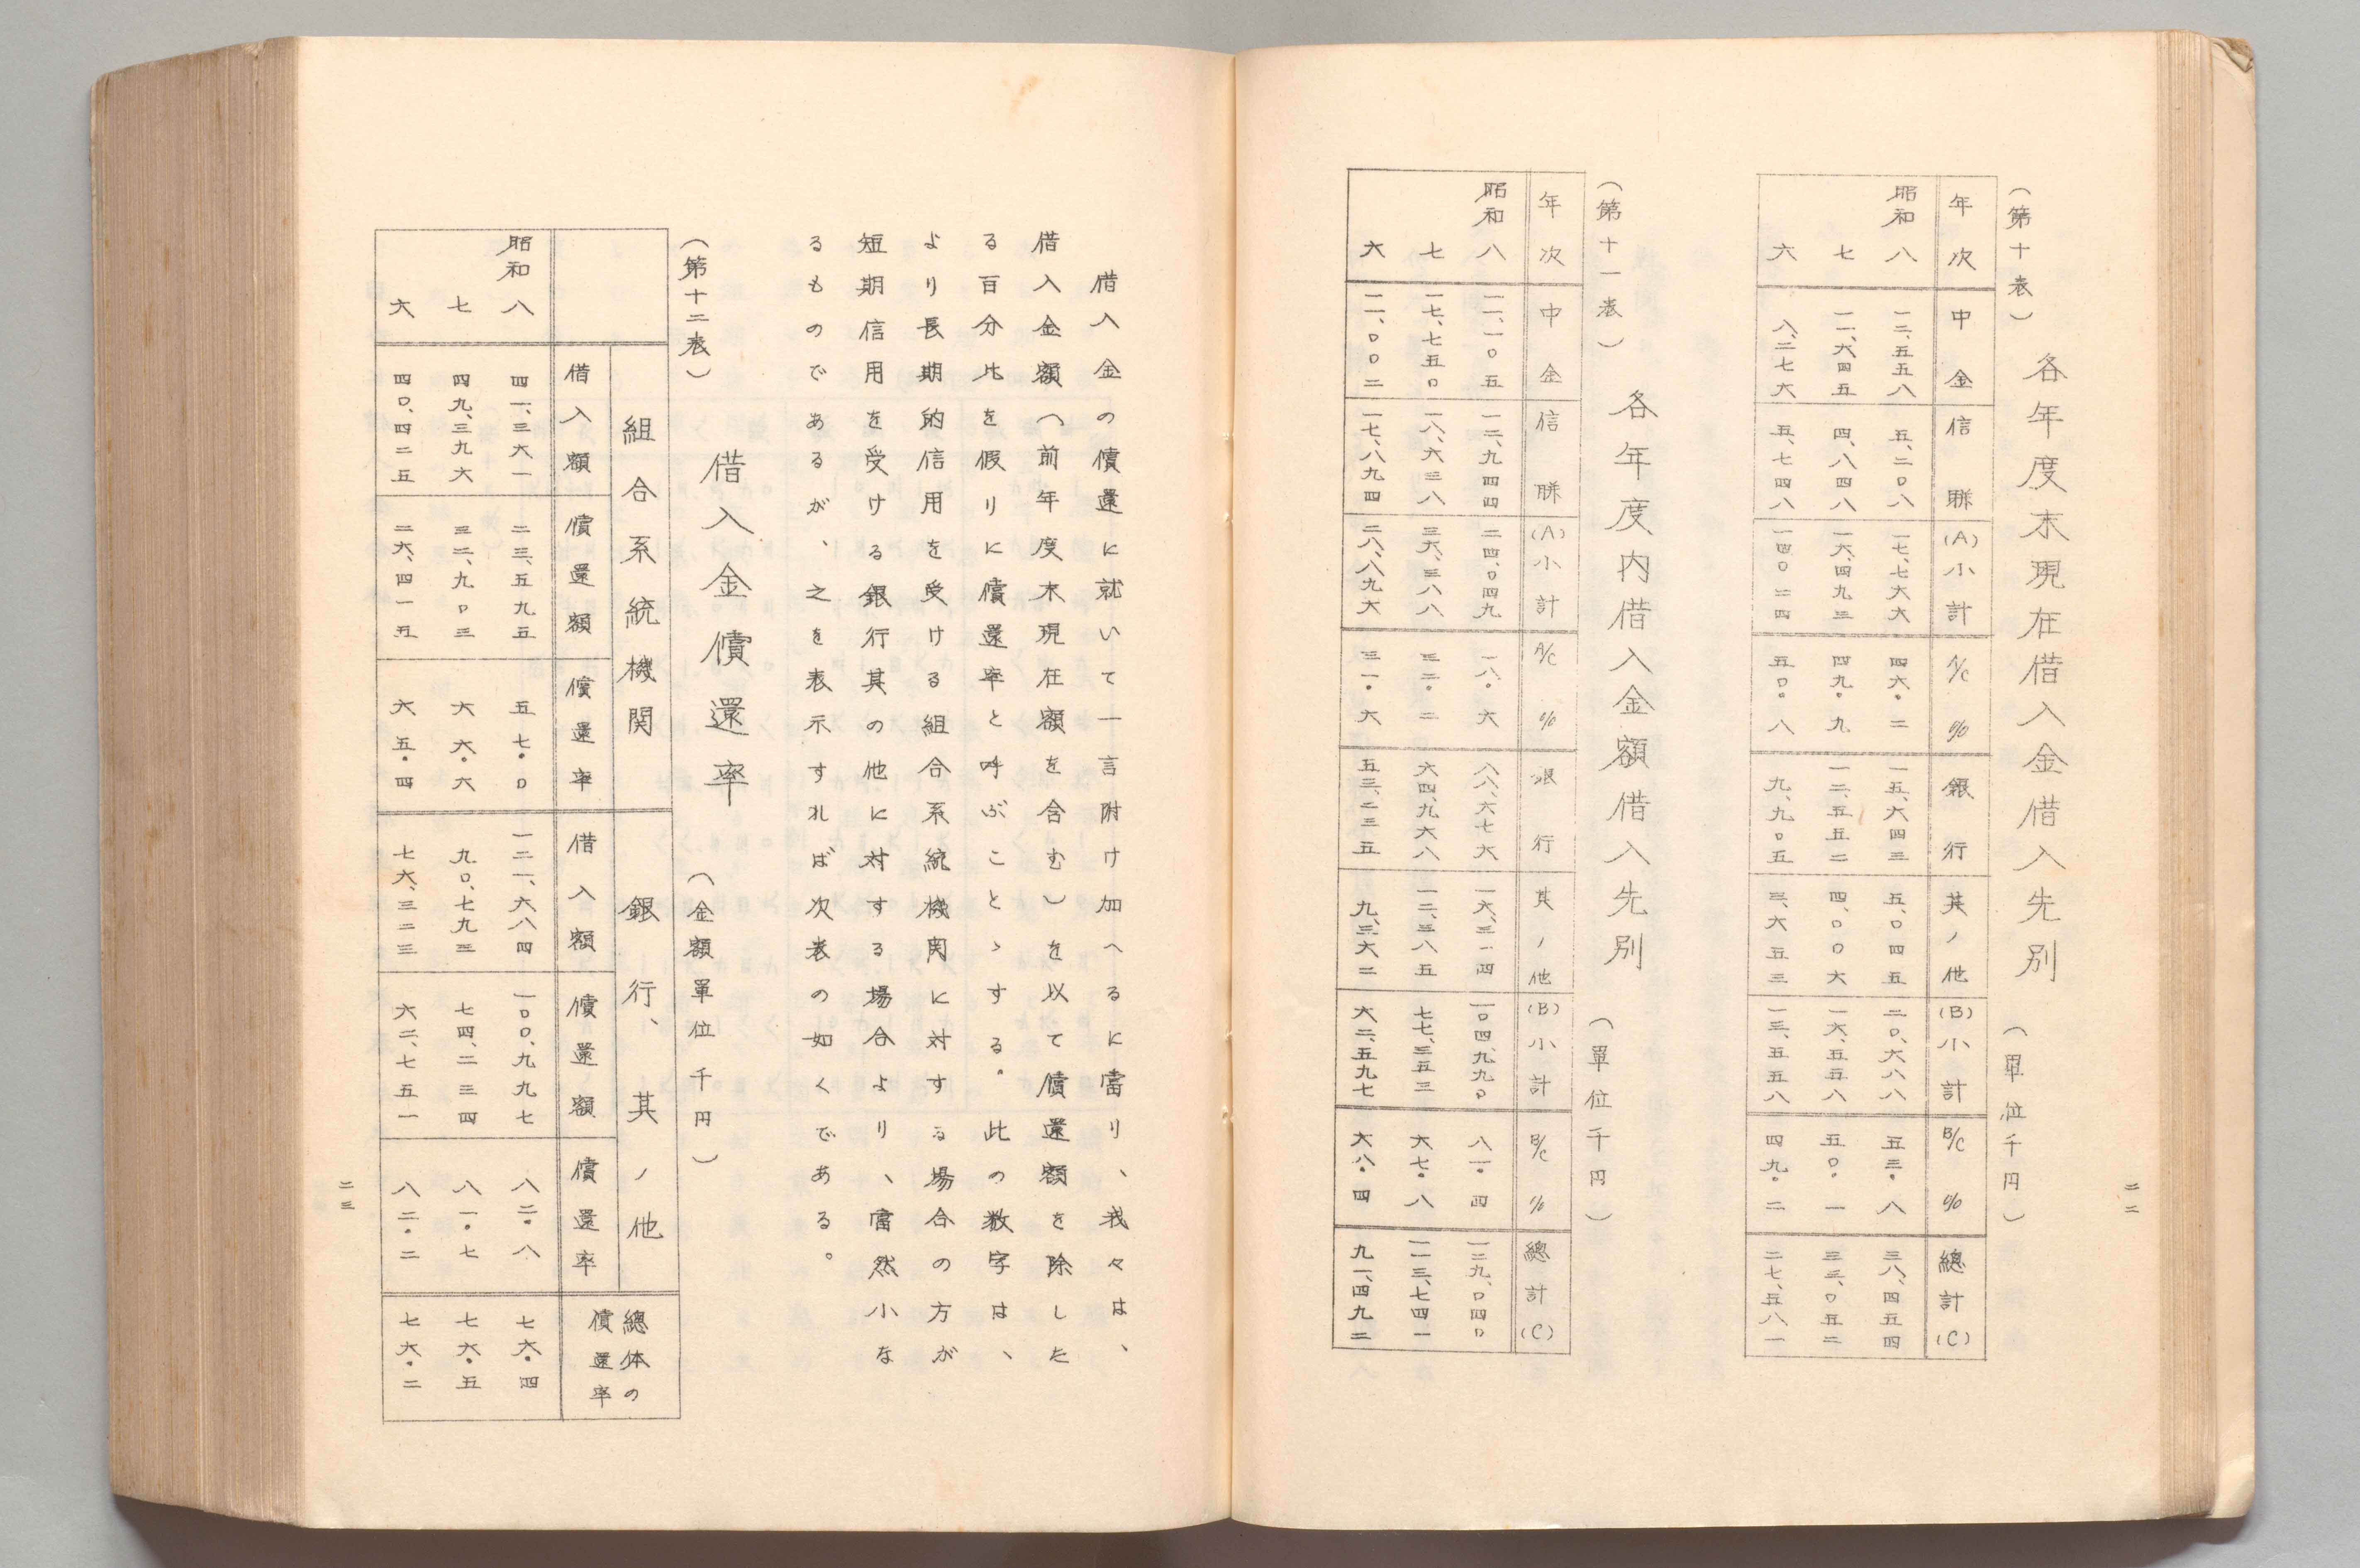 二二
(第十表) 各年度末現在借入金借入先別 (單位千円)
年次 中金 信聯 (A)小計 A/C % 銀行 其ノ他 (B)小計 B/C % 總計(C)
昭和八 一二、五五八 五、二〇八 一七、七六六 四六・二 一五、六四三 五、〇四五 二〇、六八八 五三・八 三八、四五四
七 一一、六四五 四、八四八 一六、四九三 四九・九 一二、五五二 四、〇〇六 一六、五五八 五〇・一 三三、〇五二
六 八、二七六 五、七四八 一四、〇二四 五〇・八 九、九〇五 三、六五三 一三、五五八 四九・二 二七、五八一
(第十一表) 各年度内借入金額借入先別 (單位千円)
年次 中金 信聯 (A)小計 A/C % 銀行 其ノ他 (B)小計 B/C % 總計(C)
昭和八 一一、一〇五 一二、九四四 二四、〇四九 一八・六 八八、六七六 一六、三一四 一〇四、九九〇 八一・四 一二九、〇四〇
七 一七、七五〇 一八、六三八 三六、三八八 三二・二 六四、九六八 一二、三八五 七七、三五三 六七・八 一一三、七四一
六 一一、〇〇二 一七、八九四 二八、八九六 三一・六 五三、二三五 九、三六二 六二、五九七 六八・四 九一、四九二
借入金の償還に就いて一言附け加へるに當り、我々は、
借入金額(前年度末現在額を含む)を以て償還額を除した
る百分比を假りに償還率と呼ぶことゝする。此の数字は、
より長期的信用を受ける組合系統機関に対する場合の方が
短期信用を受ける銀行其の他に対する場合より、當然小な
るものであるが、之を表示すれば次表の如くである。
(第十二表) 借入金償還率 (金額單位千円)
組合系統機関 銀行、其ノ他 總体の償還率
借入額 償還額 償還率 借入額 償還額 償還率
昭和八 四一、三六一 二三、五九五 五七・〇 一二一、六八四 一〇〇、九九七 八二・八 七六・四
七 四九、三九六 三二、九〇三 六六・六 九〇、七九三 七四、二三四 八一・七 七六・五
六 四〇、四二五 二六、四一五 六五・四 七六、三二三 六二、七五一 八二・二 七六・二
二三